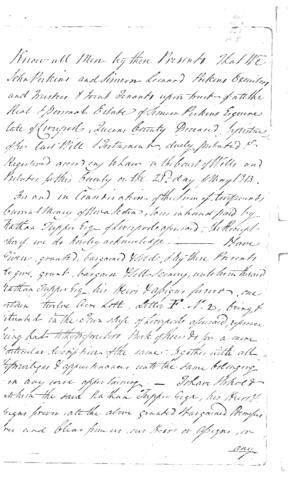 Know all Men by these Presents That We
John Perkins and Simeon Leonard Perkins Executors
and Trustees & Joint Tenants upon trust of all the
Real & Personal Estate of Simeon Perkins Esquire
late of Liverpool, Queens County Deceased,
of his last Will & Testament duly probated &
Registered according to Law in the Court of Wills and
Probates for this County on the 28th day of May 1813.
For and in Consideration of the Sum of
Current Money of Nova Scotia, to us in hand paid by
Nathan Tupper Esqr. of Liverpool aforesaid, the Receipt
whereof we do hereby acknowledge — Have
Given, granted, bargained & Sold, & by these Presents
do give, grant, bargain & Sell & convey, unto him the said
Nathan Tupper Esqr. his Heirs & Assigns forever, one
certain twelve Acre Lott, Letter F. No. 2, being &
situated in the Township of Liverpool aforesaid, reference
being had to the Proprietors Book of Records for a more
particular description of the same: together with all
Privileges & appurtenances unto the same belonging
in any wise appertaining — To have & to hold
to him the said Nathan Tupper Esqr., his Heirs &
assigns forever all the above granted & bargained Premises
free and Clear from us our Heirs or Assigns, or
any